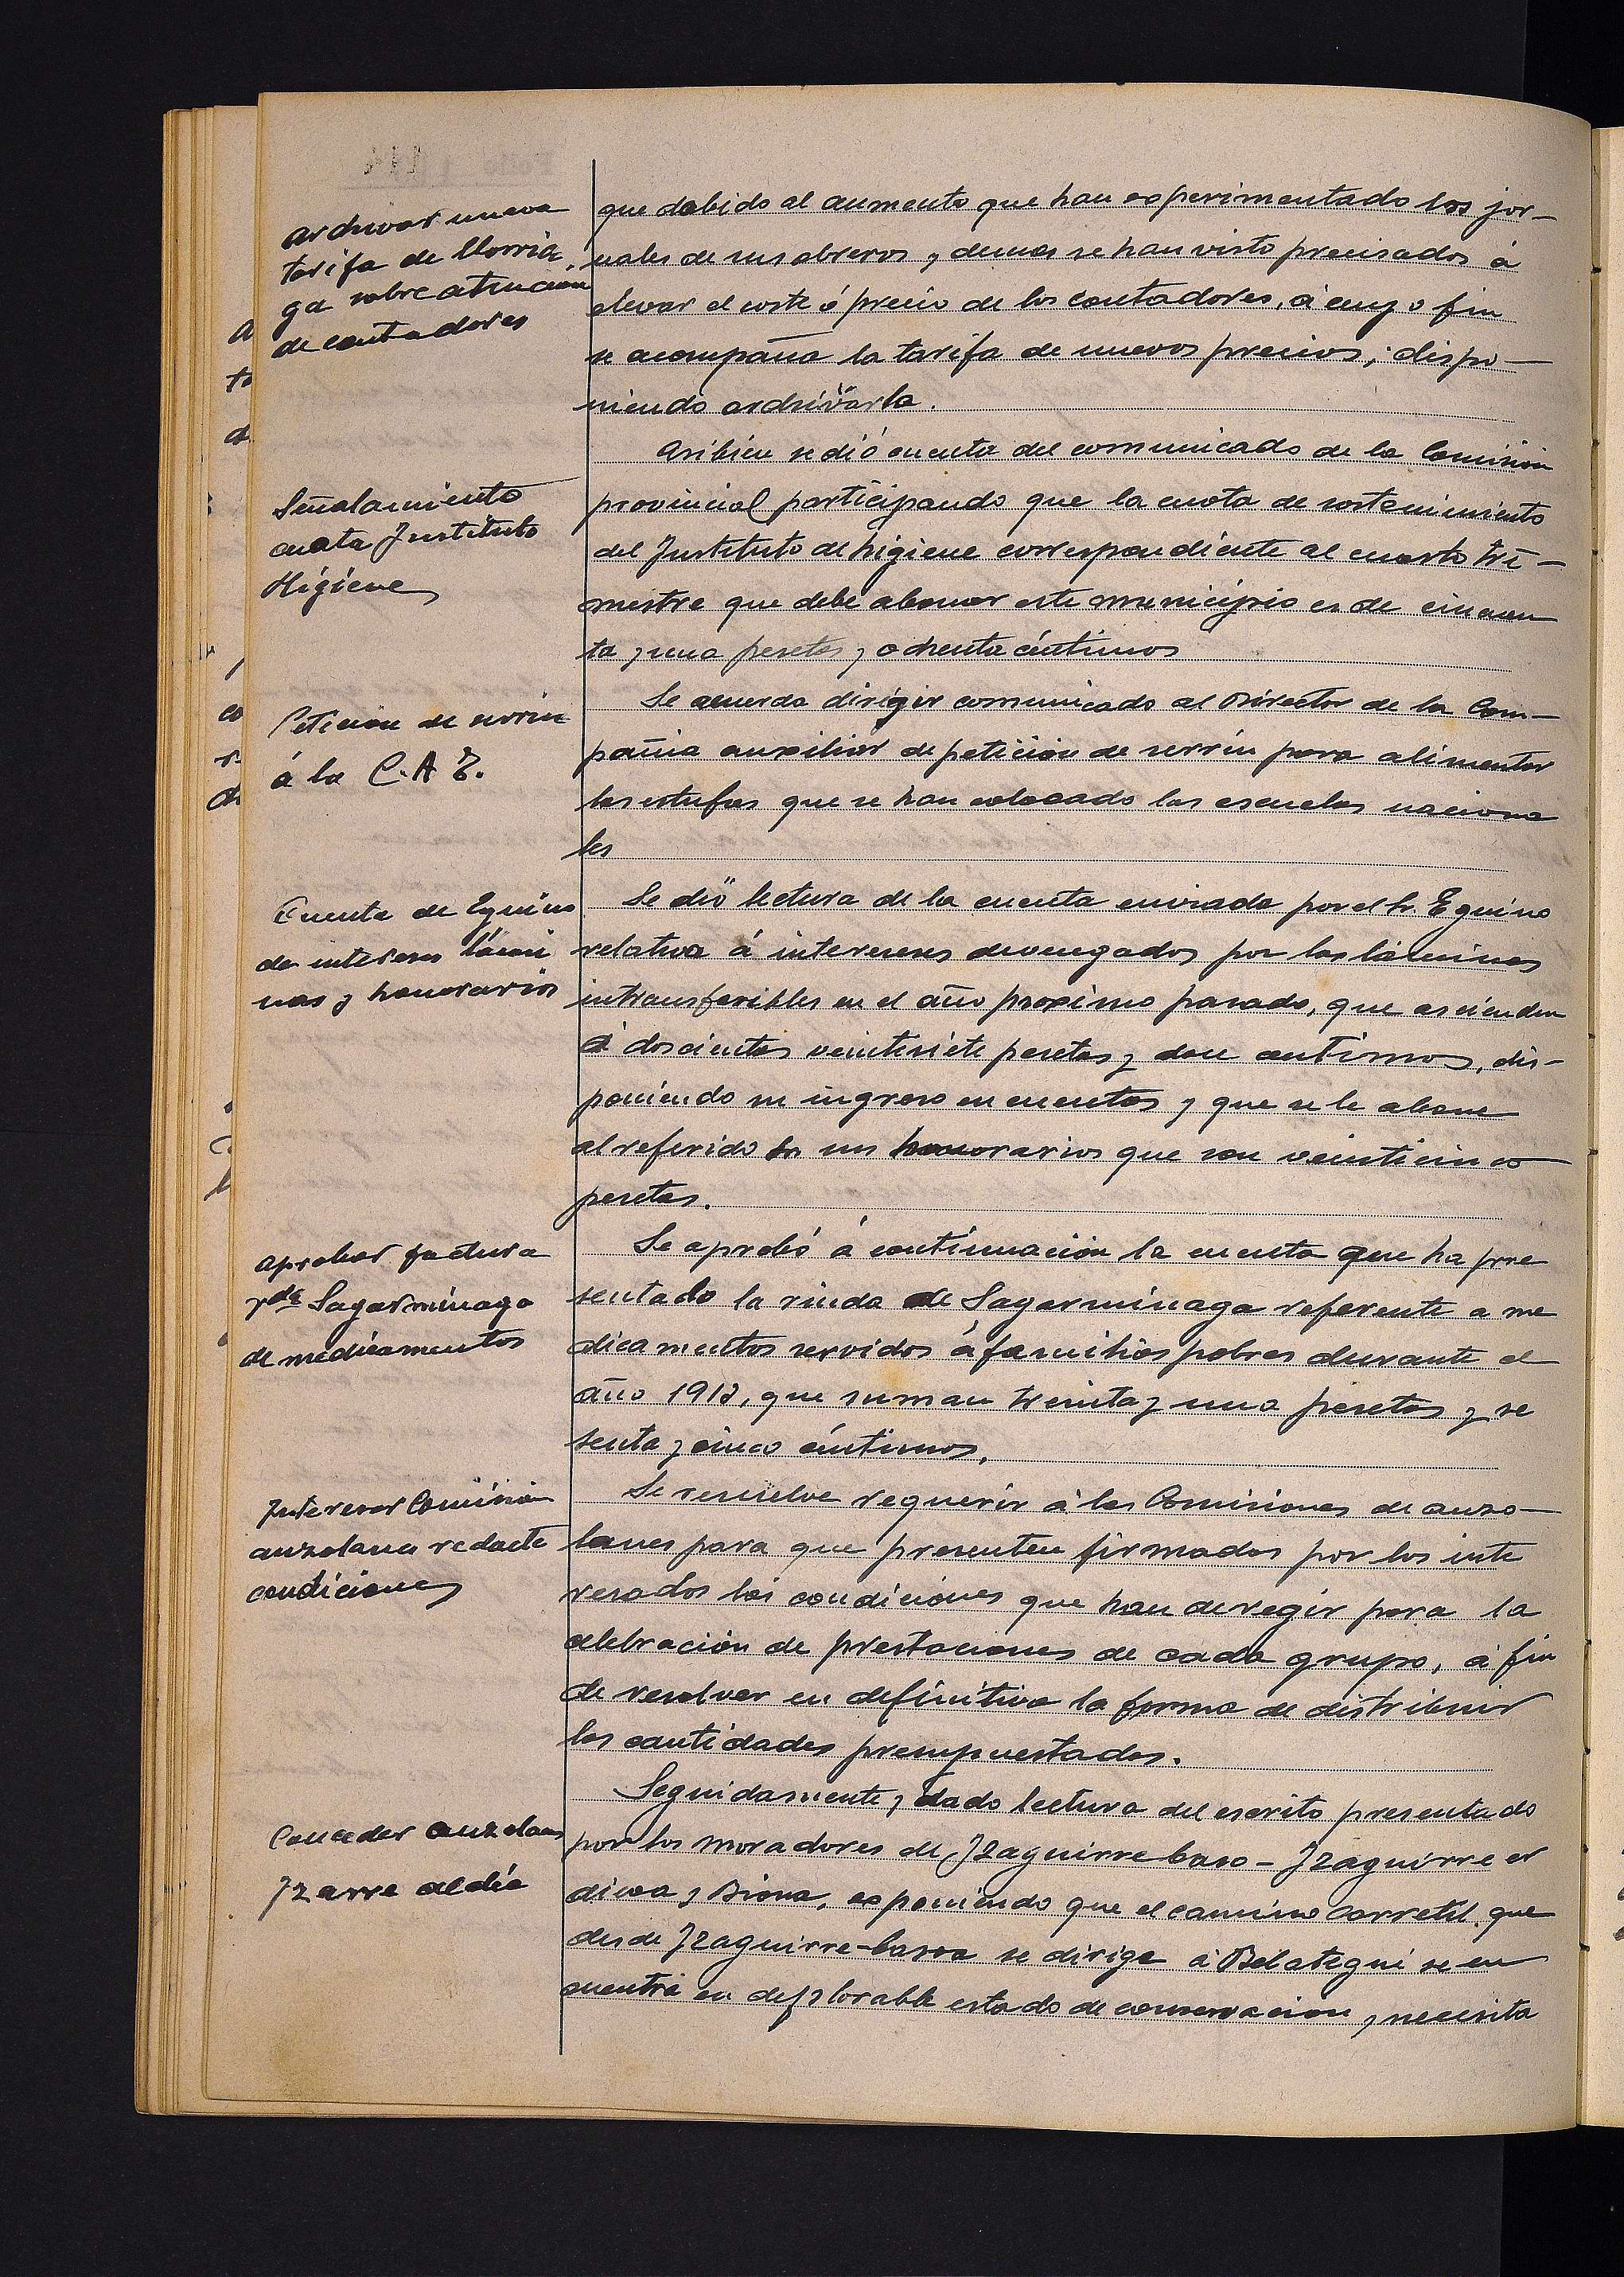 archivar nueva
tarifa de Llorria
ga sobre atencion
de contadores
que debido al aumento que han experimentado los jor-
nales de sus obreros y demas se han visto precisados á
elevar el coste ó precio de los contadores, á cuyo fin
se acompaña la tarifa de nuevos precios; dispo-
niendo archivarla.
Señalamiento
cuota Instituto
Higiene
Asibien se dió cuenta del comunicado de la Comision
provincial participando que la cuota de sostenimiento
del Instituto de higiene correspondiente al cuarto tri-
mestre que debe abonar este municipio es de cincuen
ta y una pesetas y ochenta céntimos
Peticion de serrin
á la C.A.F.
Se acuerda dirigir comunicado al Director de la Com-
pañia auxiliar de petición de serrin para alimentar
las estufas que se han colocado las escuelas naciona
les
Cuenta de Eguino
de intereses lámi
nas y honorarios
Se dió lectura de la cuenta enviada por el Sr. Eguino
relativa á intereses devengados por las láminas
intransferibles en el año proximo pasado, que ascienden
á doscientas veintesiete pesetas y doce centimos, dis-
poniendo su ingreso en cuentas y que se le abone
al referido Sr. sus honorarios que son veinticinco
pesetas.
aprobar factura
vda Sagarminaga
de medicamentos
Se aprobó á continuación la cuenta que ha pre
sentado la viuda de Sagarminaga referente a me
dicamentos servidos á familias pobres durante el
año 1913, que suman treinta y una pesetas y se
senta y cinco céntimos.
Interesar Comisión
auzolanes redacte
condiciones
Se resuelve requerir á las Comisiones de auzo-
lanes para que presenten firmadas por los inte
resados las condiciones que han de regir para la
celebración de prestaciones de cada grupo, á fin
de resolver en definitiva la forma de distribuir
las cantidades presupuestadas.
Conceder auzolan
Izarre aldia
Seguidamente, dado lectura del escrito presentado
por los moradores de Izaguirre baso - Izaguirre er
dicoa y Biona, exponiendo que el camino carretil que
desde Izaguirre-basoa se dirige á Belategui se en
cuentra en deplorable estado de conservacion y necesita